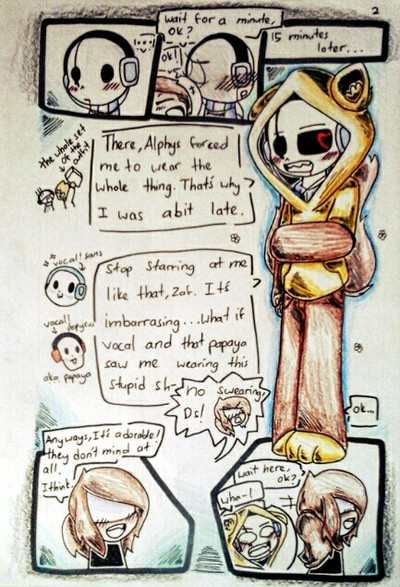 2
wait for a minute,
ok?
ok!
15 minutes
later...
the whole set
of the
outfit
There, Alphys forced
me to wear the
whole thing. That's why
I was abit late.
vocal! sans
vocal!
papyrus
aka papaya
Stop starring at me
like that, Zaf. It's
imbarrasing...what if
vocal and that papaya
saw me wearing this
stupid sh-
no swearing,
Ds!
ok...
Anyways, It's adorable!
they don't mind at
all.
I think.
wait here,
ok?
wha-!